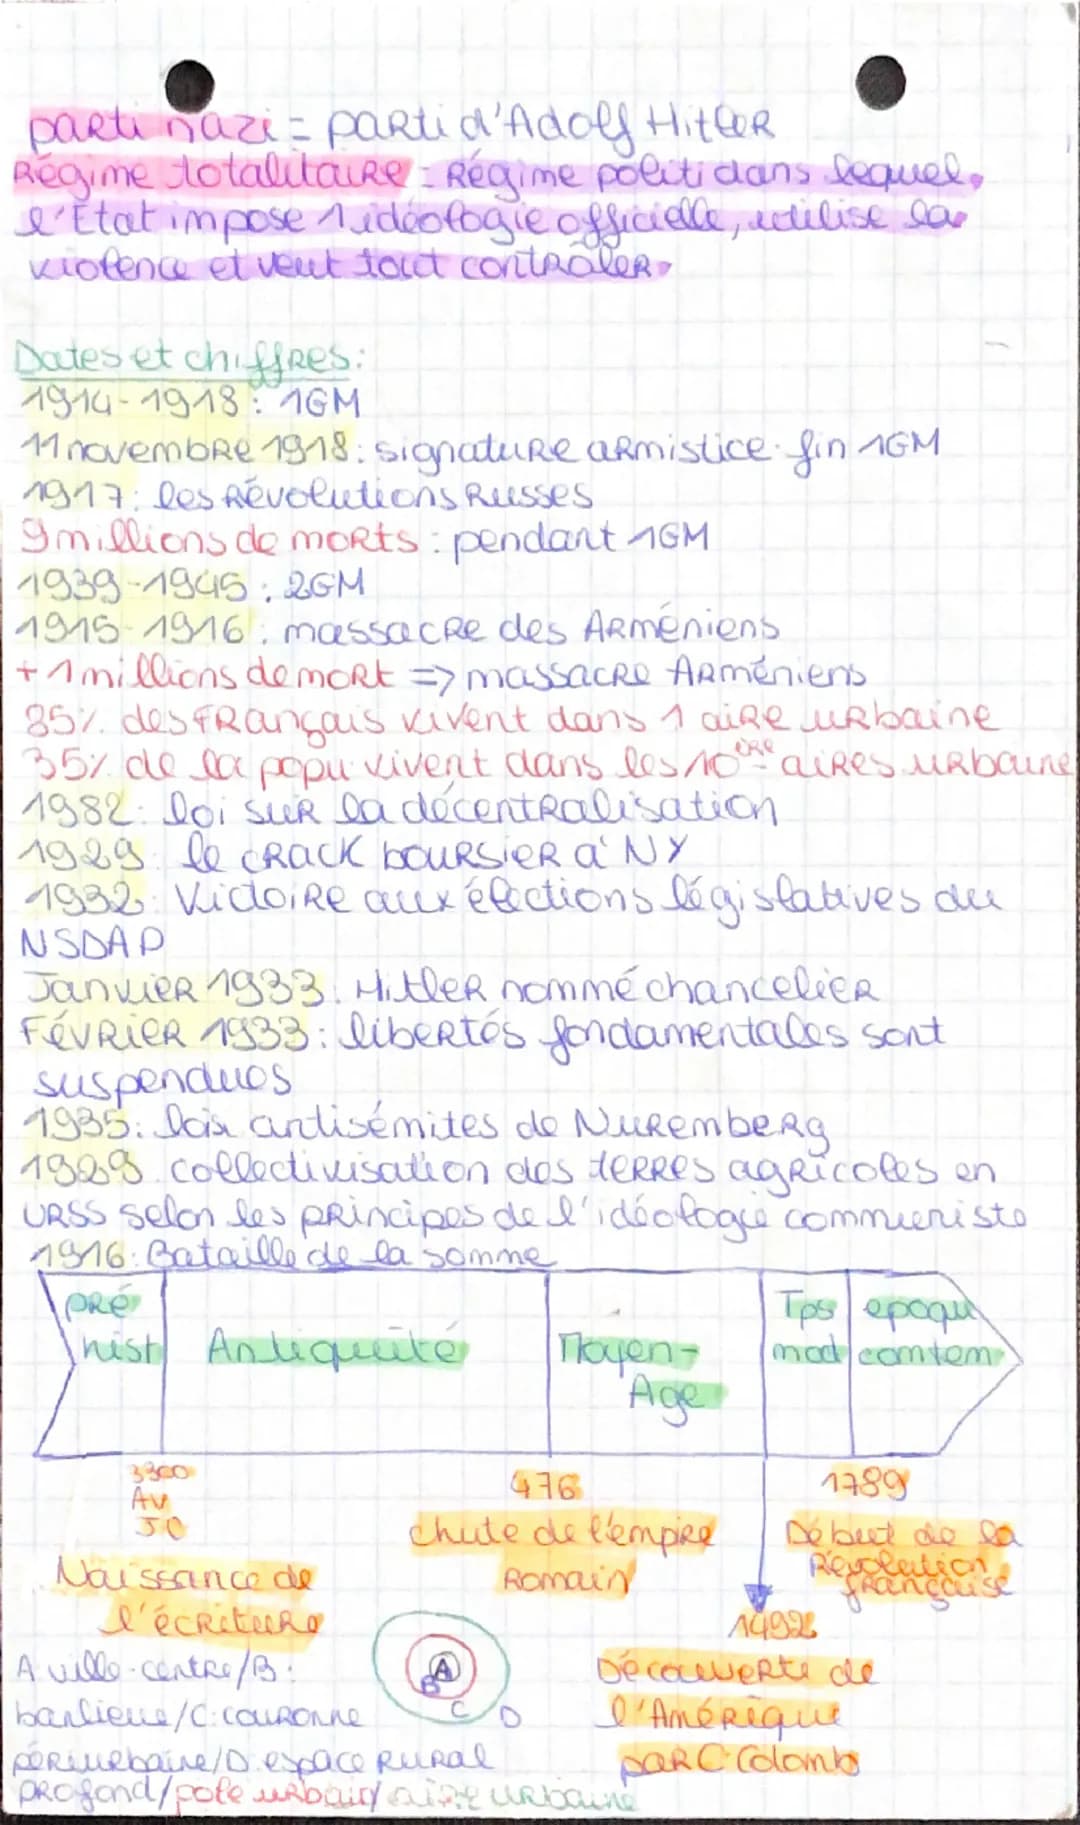 parti nazi = parti d'Adolf Hitler
Régime totalitaire = Régime politi dans lequel
l'Etat impose 1 idéologie officielle, utilise la
violence et veut tout contrôler.
Dates et chiffres:
1914-1918: 1GM
11 novembre 1918: signature armistice fin 1GM
1917: les Révolutions Russes
9 millions de morts: pendant 1GM
1939-1945: 2GM
1915-1916: massacre des Arméniens
+ 1 millions de mort => massacre Arméniens
85% des français vivent dans 1 aire urbaine
35% de la popu vivent dans les 10ère aires urbaine
1982: loi sur la décentralisation
1929: le crack boursier à NY
1932: Victoire aux élections législatives du
NSDAP
Janvier 1933: Hitler nommé chancelier
Février 1933: libertés fondamentales sont
suspendues
1935: lois antisémites de Nuremberg
1929: collectivisation des terres agricoles en
URSS selon les principes de l'idéologie communiste
1916: Bataille de la somme
pré
hist
Antiquité
Moyen-
Age
Tps
mod
epoqu
contem
3300
AV
JC
Naissance de
l'écriture
476
chute de l'empire
Romain
1492
Découverte de
l'Amérique
par C. Colomb
1789
Début de la
Révolution
française
A
B
C
D
A ville-centre/B:
banlieue/C: couronne
périurbaine/D: espace rural
profond/pole urbain/aire urbaine